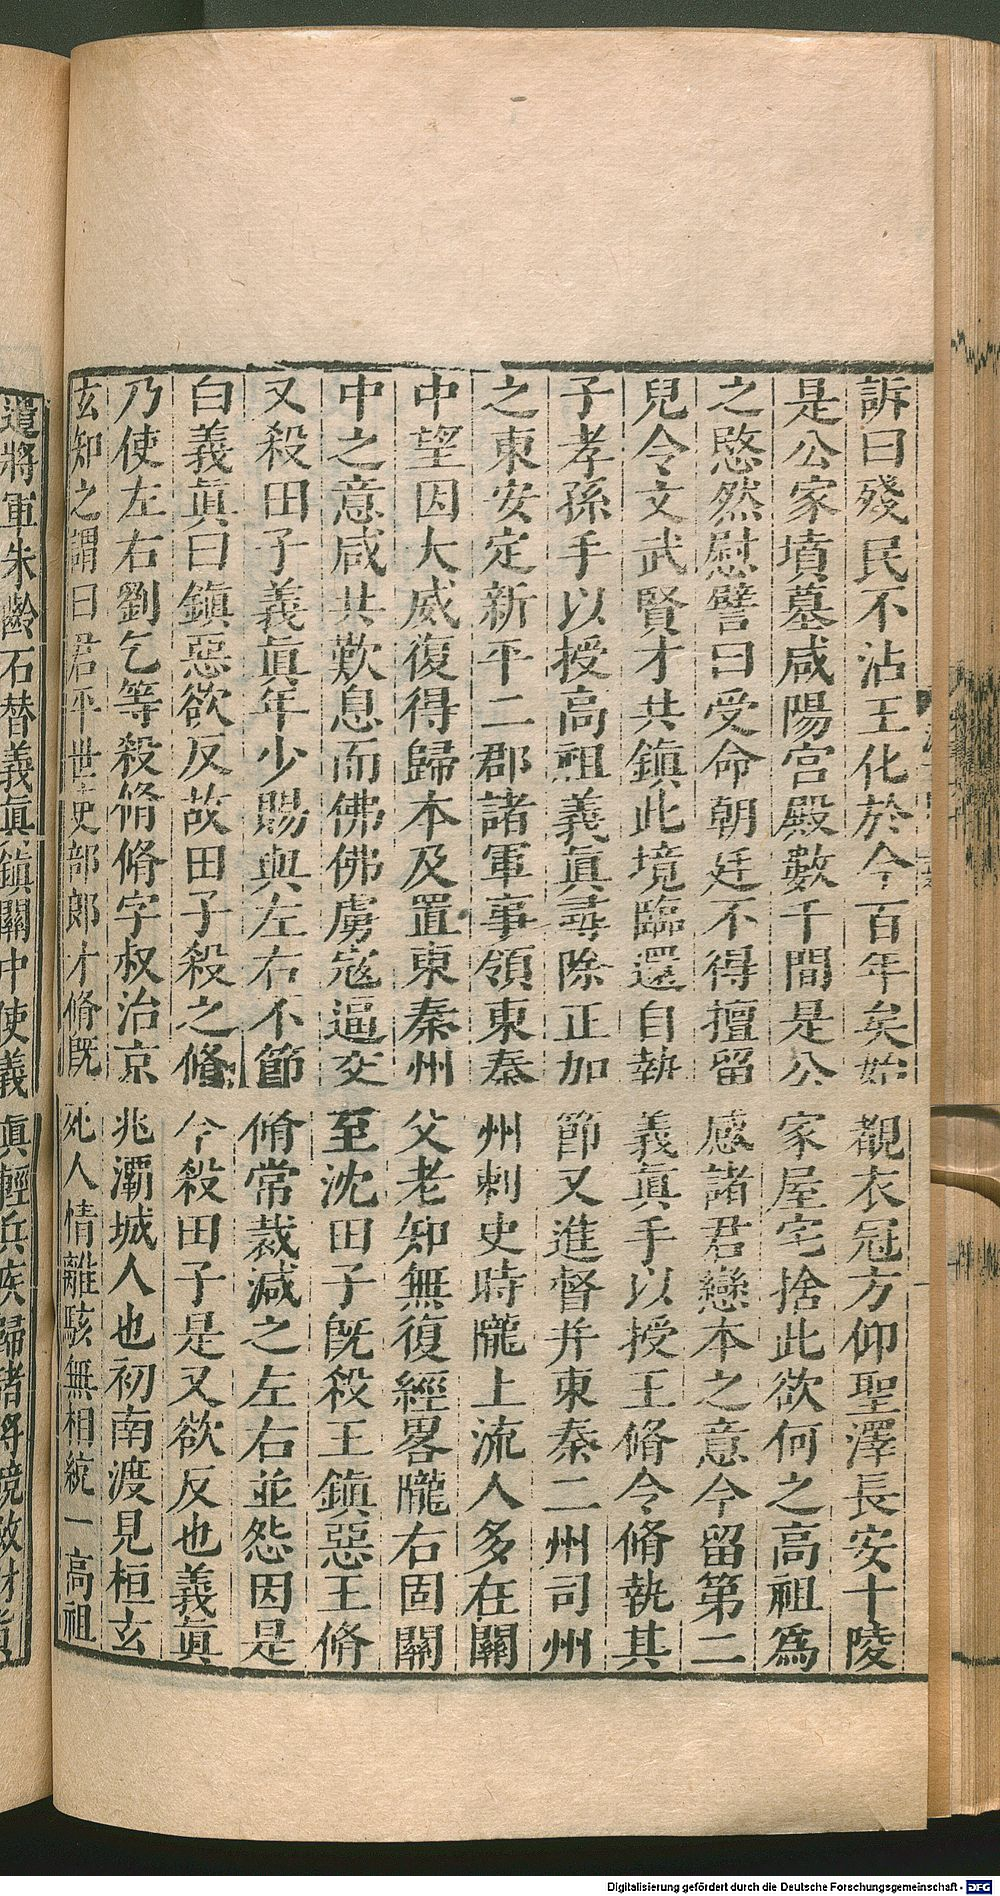 訴曰殘民不沾王化於今百年矣始覩衣冠方仰聖澤長安十陵
是公家墳墓咸陽宮殿數千間是公家屋宅捨此欲何之高祖爲
之愍然慰譬曰受命朝廷不得擅留感諸君戀本之意今留第二
兒令文武賢才共鎮此境臨還自執義眞手以授王脩令脩執其
子孝孫手以授高祖義眞尋除正加節又進督并東秦二州司州
之東安定新平二郡諸軍事領東秦州刺史時隴上流人多在關
中望因大威復得歸本及置東秦州父老知無復經畧隴右固關
中之意咸共歎息而佛佛虜寇逼交至沈田子旣殺王鎮惡王脩
又殺田子義眞年少賜與左右不節脩常裁減之左右並怨因是
白義眞曰鎮惡欲反故田子殺之脩今殺田子是又欲反也義眞
乃使左右劉乞等殺脩脩字叔治京兆灞城人也初南渡見桓玄
玄知之謂曰君平世吏部郎才脩旣死人情離駭無相統一高祖
遣將軍朱齡石替義眞鎮關中使義眞輕兵疾歸諸將競斂財貨
Digitalisierung gefördert durch die Deutsche Forschungsgemeinschaft - DFG